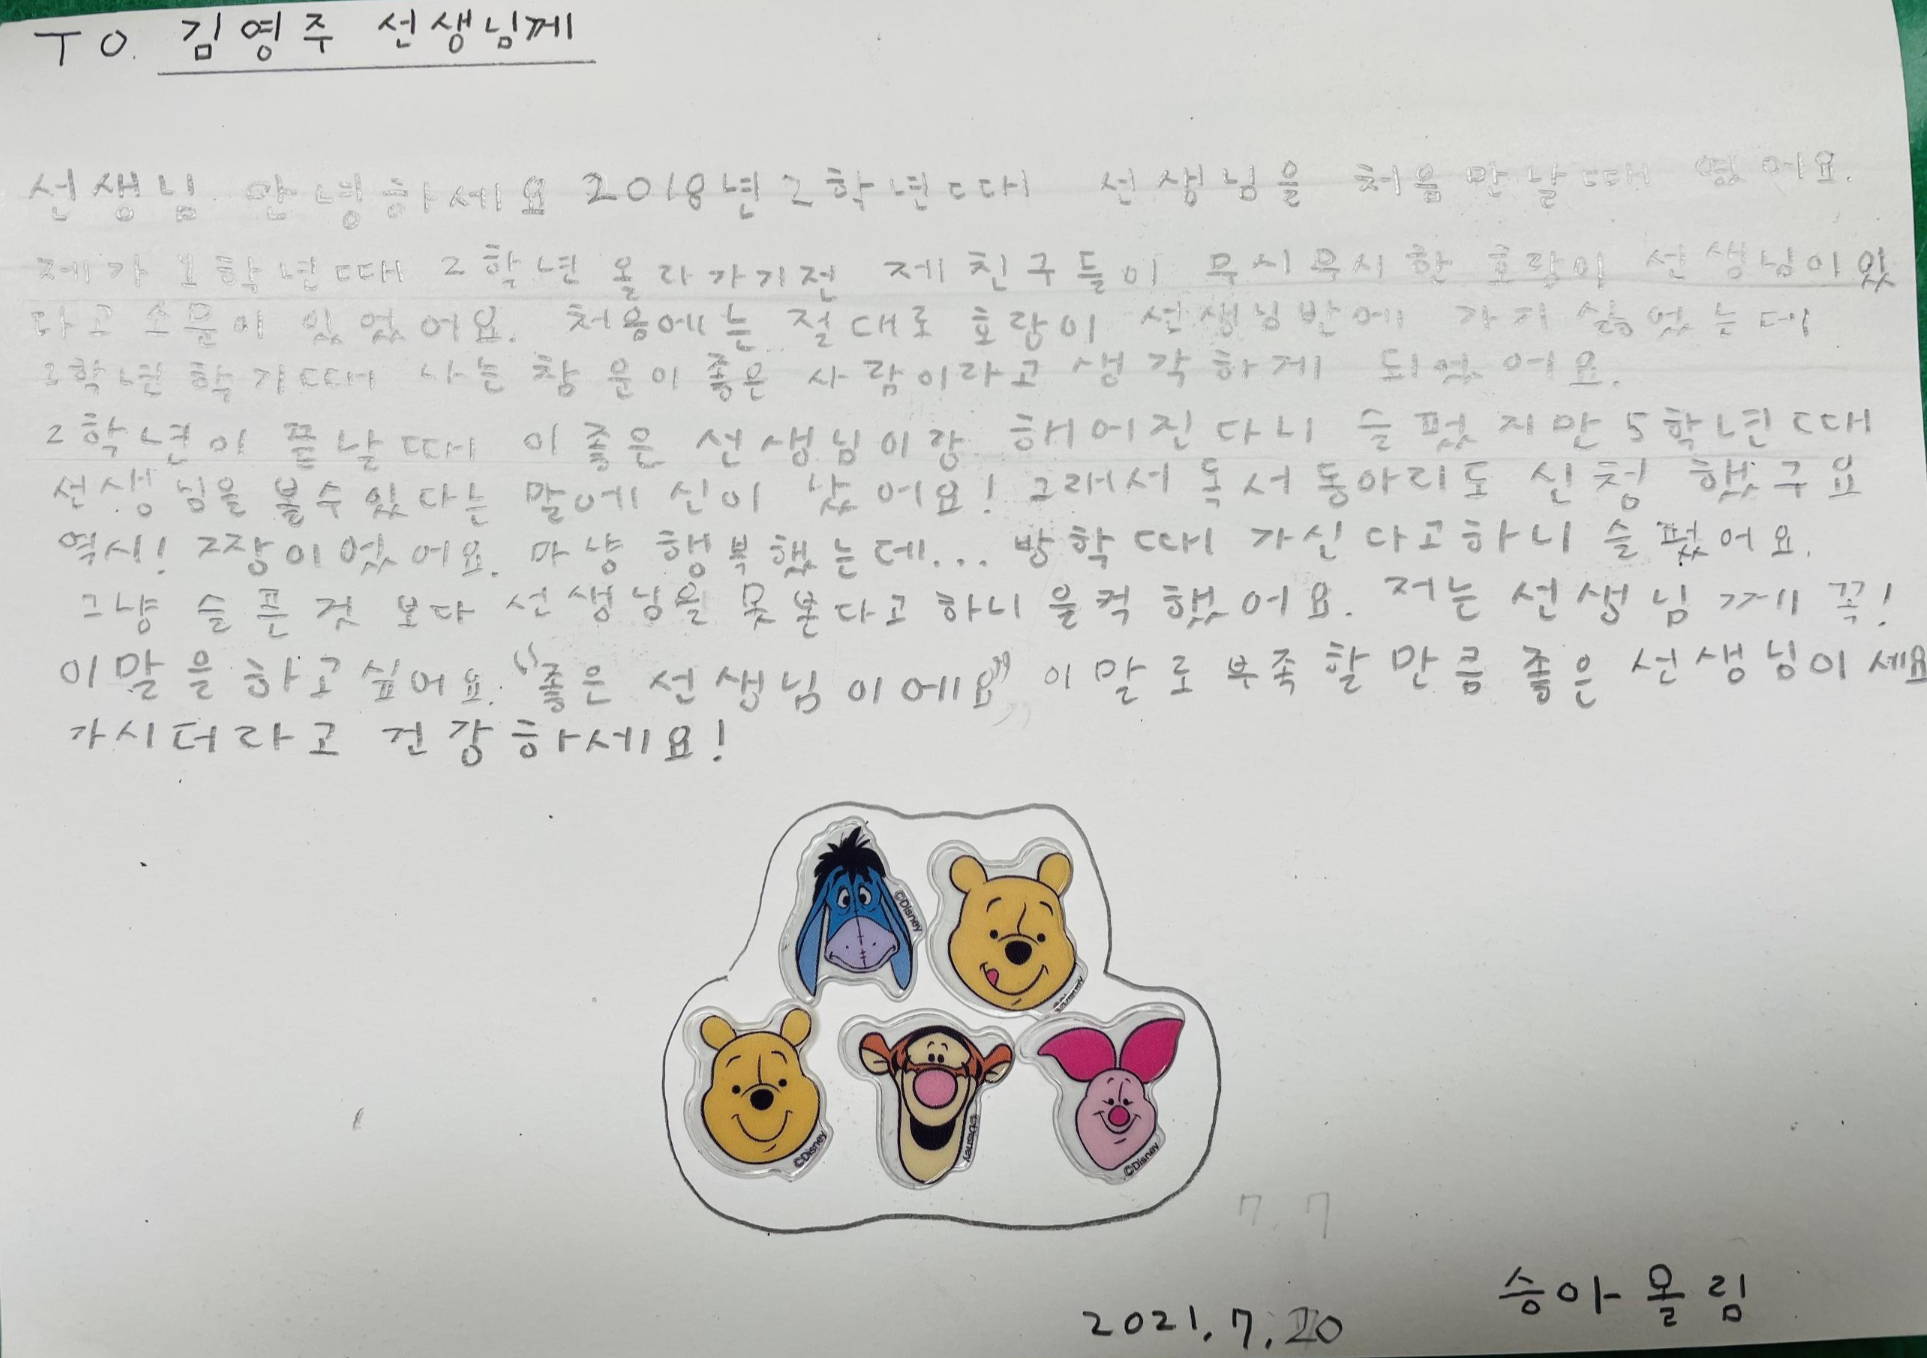 TO. 김영주 선생님께
선생님 안녕하세요 2018년 2학년때 선생님을 처음 만날때 였어요.
제가 1학년때 2학년 올라가기전 제 친구들이 무시무시한 호랑이 선생님이 있
다고 소문이 있었어요. 처음에는 절대로 호랑이 선생님반에 가기 싫었는데
2학년 학기때 나는 참 운이 좋은 사람이라고 생각하게 되었어요.
2학년이 끝날때 이 좋은 선생님이랑 해어진다니 슬펐지만 5학년때
선생님을 볼수있다는 말에 신이 났어요! 그래서 독서동아리도 신청 했구요
역시! 짱이었어요. 마냥 행복했는데... 방학때 가신다고하니 슬펐어요.
그냥 슬픈것 보다 선생님을 못본다고 하니 울컥 했어요. 저는 선생님께 꼭!
이말을 하고싶어요. "좋은 선생님이에요" 이말로 부족할만큼 좋은 선생님이세요
가시더라고 건강하세요!
©Disney
©Disney
©Disney
©Disney
©Disney
7.7
2021.7.20
승아올림